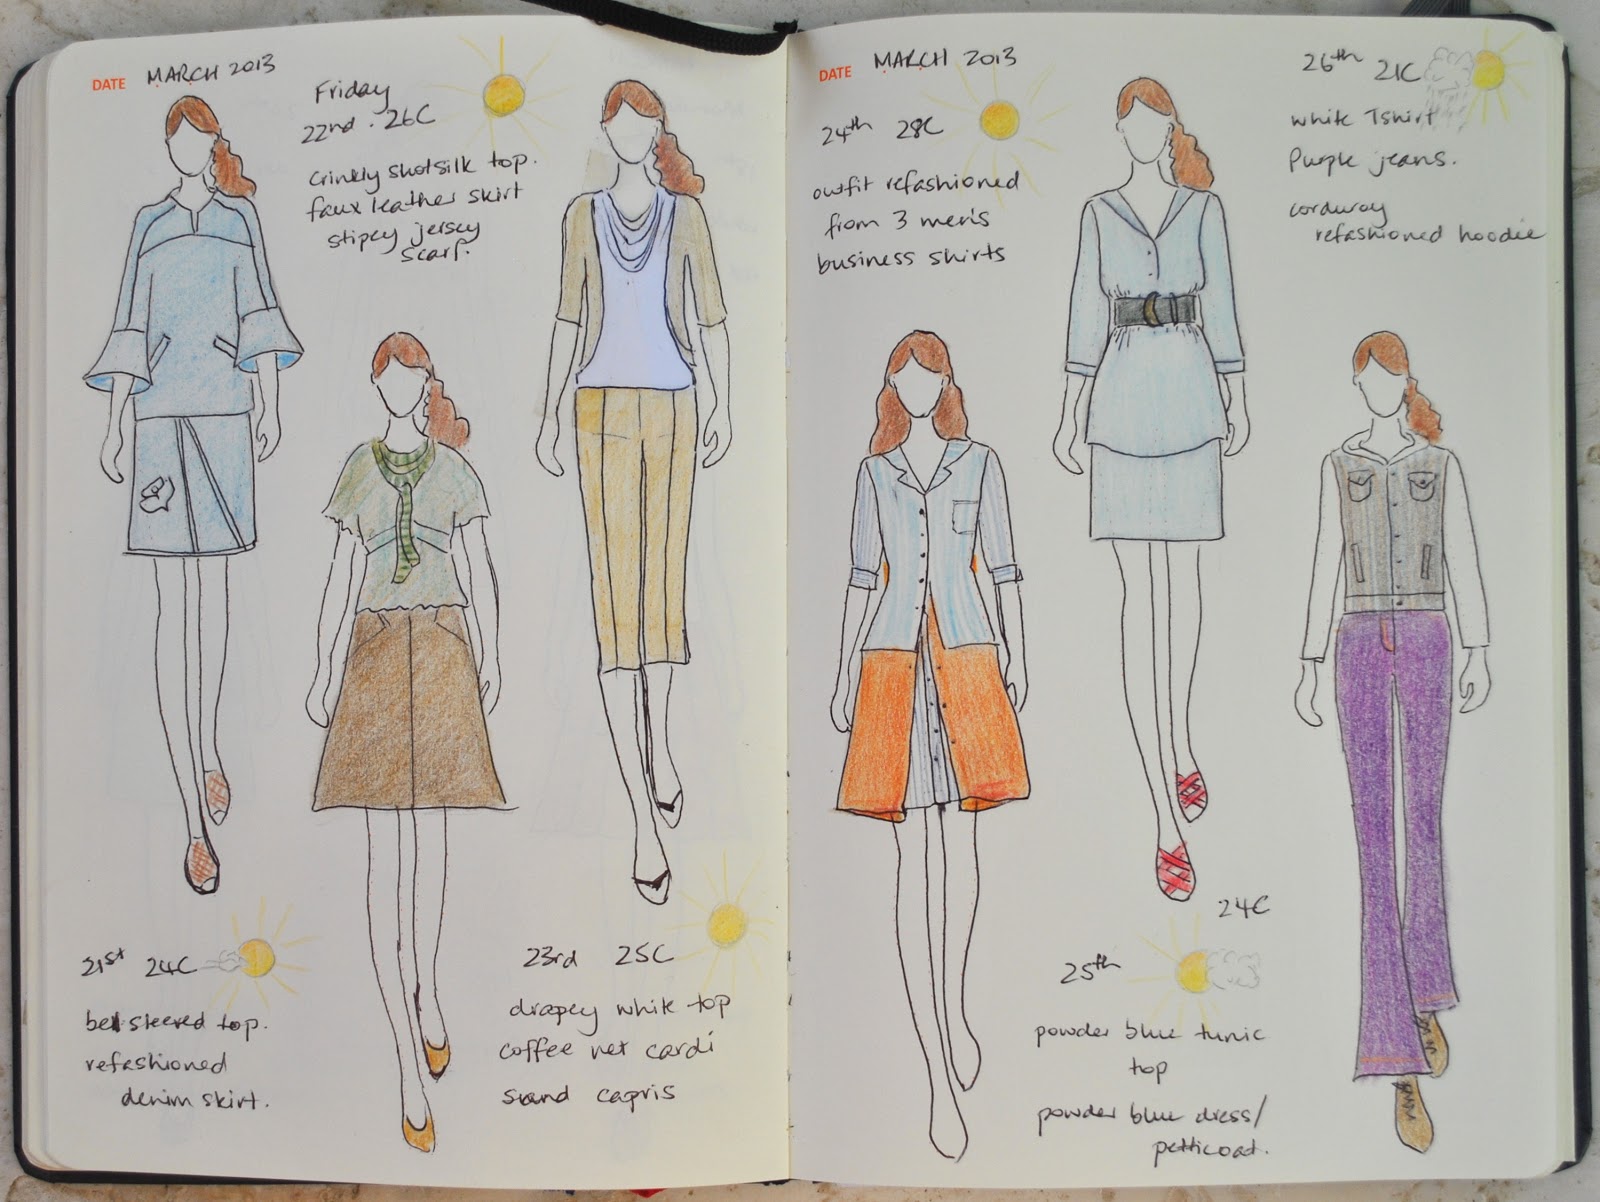 DATE MARCH 2013
Friday
22nd . 26C
crinkly shotsilk top.
faux leather skirt
stipey jersey
scarf.
21st 24C
bell sleeved top.
refashioned
denim skirt.
23rd 25C
drapey white top
coffee net cardi
sand capris
DATE MARCH 2013
24th 28C
outfit refashioned
from 3 men's
business shirts
24C
25th
powder blue tunic
top
powder blue dress/
petticoat.
26th 21C
white Tshirt
Purple jeans.
corduroy
refashioned hoodie